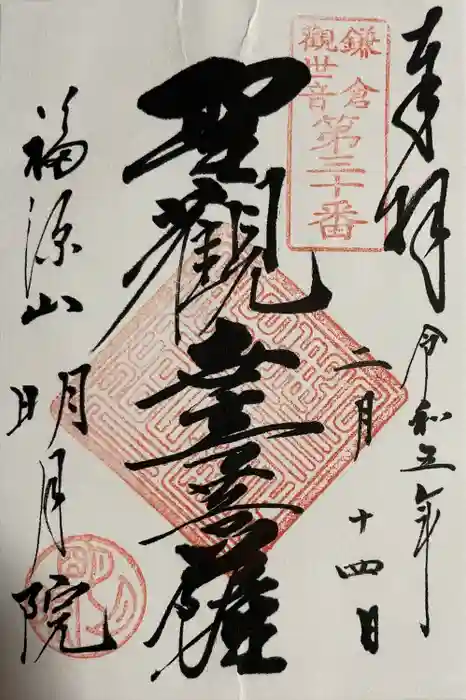 奉拝
令和五年
二月十四日
鎌倉
觀世音
第三十番
聖觀世音菩薩
福源山
明月院